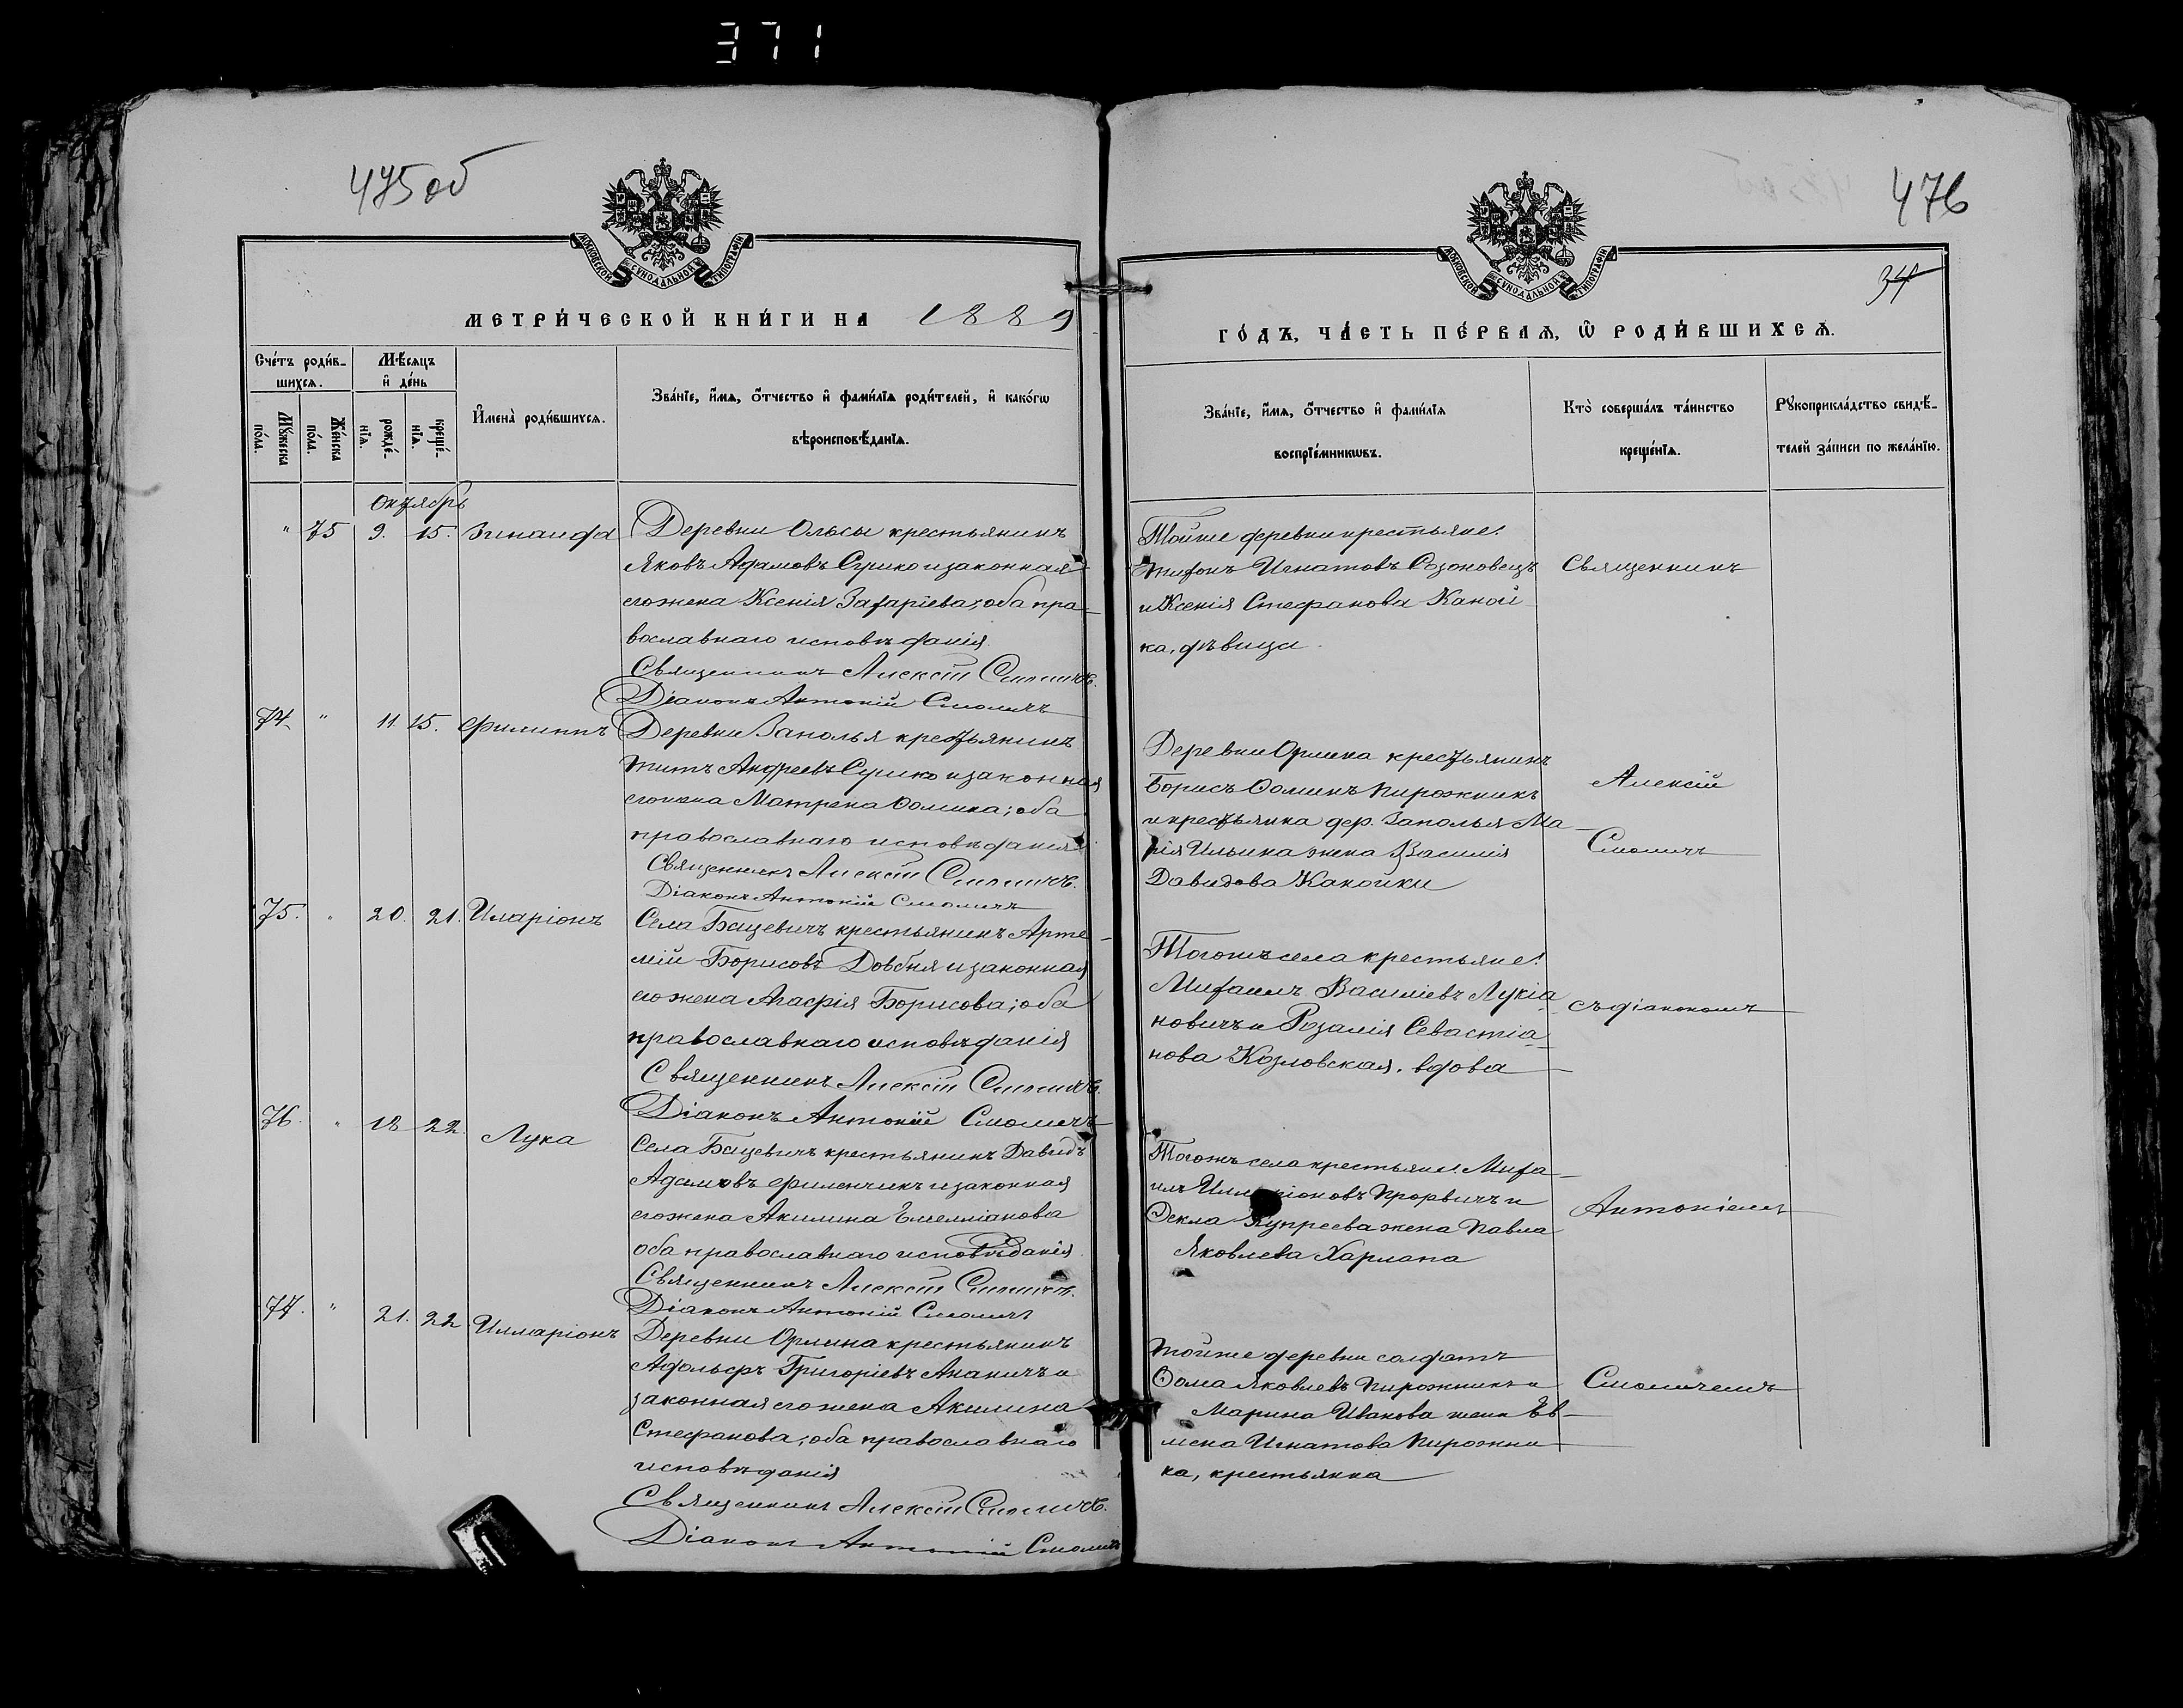 371
475об
МОСКОВСКОЙ СѴНОДАЛЬНОЙ ТИПОГРАФІИ
МЕТРИ́ЧЕСКОЙ КНИ́ГИ НА 1889
Сче́тъ роди́в-
шихсѧ.
Мѣ́сѧцъ
и҆ де́нь
Мꙋ́жеска
по́ла.
Же́нска
по́ла.
рожде́-
нїѧ.
креще́-
нїѧ.
И҆мена̀ роди́вшихсѧ.
Зва́нїе, и҆́мѧ, ѻ҆́тчество и҆ фами́лїѧ роди́телей, и҆ како́гѡ
вѣроисповѣ́данїѧ.
Октябрь
" 75 9. 15. Зинаида
Деревни Ольсы крестьянинъ
Яковъ Адамовъ Сушко и законная
его жена Ксенія Захаріева; оба пра-
вославнаго исповѣданія
Священникъ Алексій Смоличъ.
Діаконъ Антоній Смоличъ
74. " 11. 15. Филиппъ
Деревни Заполья крестьянинъ
Титъ Андреевъ Сушко и законная
его жена Матрена Ѳомина; оба
православнаго исповѣданія
Священникъ Алексій Смоличъ.
Діаконъ Антоній Смоличъ
75. " 20. 21. Иларіонъ
Села Бацевичъ крестьянинъ Арте-
мій Борисовъ Довбня и законная
его жена Агафія Борисова; оба
православнаго исповѣданія
Священникъ Алексій Смоличъ.
Діаконъ Антоній Смоличъ
76. " 18 22. Лука
Села Бацевичъ крестьянинъ Давидъ
Адамовъ Филенчикъ и законная
его жена Акилина Емелліанова
оба православнаго исповѣданія
Священникъ Алексій Смоличъ.
Діаконъ Антоній Смоличъ
77. " 21. 22 Илларіонъ
Деревни Орлина крестьянинъ
Адольфъ Григоріевъ Ананичъ и
законная его жена Акилина
Стефанова; оба православнаго
исповѣданія
Священникъ Алексій Смоличъ.
Діаконъ Антоній Смоличъ
476
34
МОСКОВСКОЙ СѴНОДАЛЬНОЙ ТИПОГРАФІИ
ГО́ДЪ, ЧА́СТЬ ПЕ́РВАѦ, Ѽ РОДИ́ВШИХСѦ.
Зва́нїе, и҆́мѧ, ѻ҆́тчество и҆ фами́лїѧ
воспрїе́мникѡвъ.
Кто̀ соверша́лъ та́инство
креще́нїѧ.
Рꙋкоприкла́дство свидѣ́-
телей за́писи по жела́нїю.
Тойже деревни крестьяне:
Тихонъ Игнатовъ Созоновецъ
и Ксенія Стефанова Каной-
ка, дѣвица.
Деревни Орлина крестьянинъ
Борисъ Ѳоминъ Пирожникъ
и крестьянка дер. Заполья Ма-
рія Ильина жена Василія
Давидова Канойки
Тогожъ села крестьяне:
Михаилъ Василіевъ Лукіа-
новичъ и Розалія Севастіа-
нова Козловская, вдова
Тогожъ села крестьяне: Миха-
илъ Илларіоновъ Прорвичъ и
Ѳекла Купреева жена Павла
Яковлева Харлана
Тойже деревни солдатъ
Ѳома Яковлевъ Пирожникъ и
Марина Иванова жена Ев-
мена Игнатова Пирожни-
ка, крестьянка
Священникъ
Алексій
Смоличъ
съ діакономъ
Антоніемъ
Смоличемъ